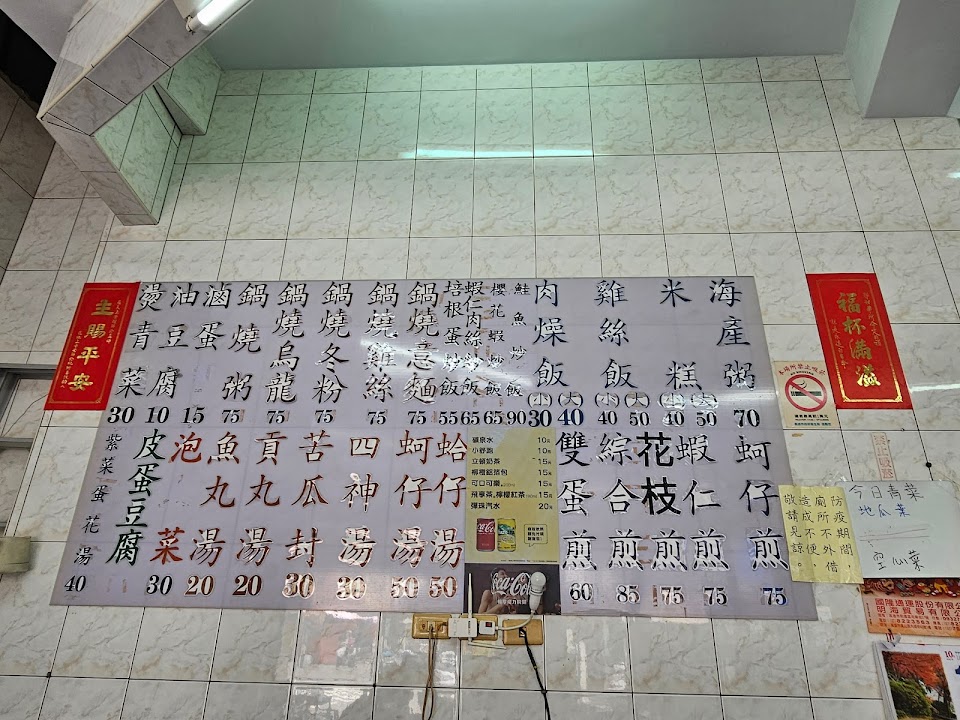 福杯滿溢
主賜平安
海產粥 70
米糕 小 40 大 50
雞絲飯 小 40 大 50
肉燥飯 小 30 大 40
鮭魚炒飯 90
櫻花蝦炒飯 65
蝦仁肉絲炒飯 65
培根蛋炒飯 55
鍋燒意麵 75
鍋燒雞絲 75
鍋燒冬粉 75
鍋燒烏龍 75
鍋燒粥 75
滷蛋 15
油豆腐 10
燙青菜 30
蚵仔煎 75
蝦仁煎 75
花枝煎 75
綜合煎 85
雙蛋煎 60
礦泉水 10元
小舒跑 15元
立頓奶茶 15元
檸檬鋁箔包 15元
可口可樂 15元
飛享茶,檸檬紅茶 15元
彈珠汽水 20元
Coca-Cola
蛤仔湯 50
蚵仔湯 50
四神湯 30
苦瓜封 30
貢丸湯 20
魚丸湯 20
泡菜
皮蛋豆腐 30
紫菜蛋花湯 40
防疫期間,
廁所不外借,
造成不便,
敬請見諒。
今日青菜
地瓜葉
空心菜